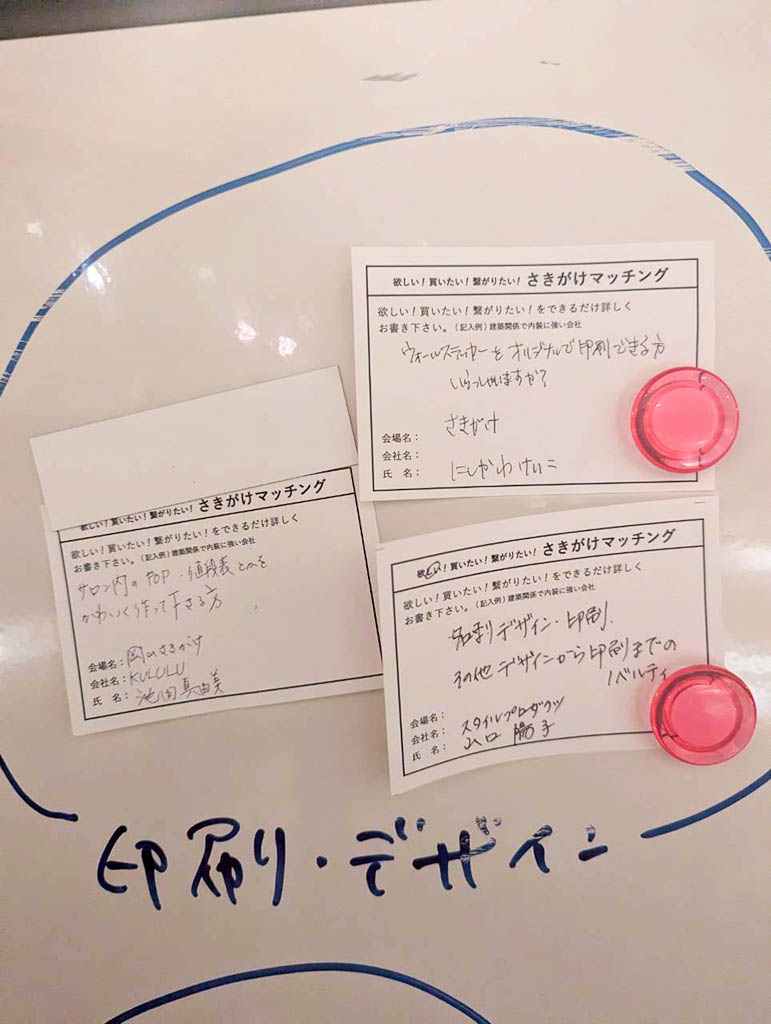 欲しい！買いたい！繋がりたい！ さきがけマッチング
欲しい！買いたい！繋がりたい！をできるだけ詳しく
お書き下さい。（記入例）建築関係で内装に強い会社
ウォールステッカーをオリジナルで印刷できる方
いらっしゃいますか？
会場名： さきがけ
会社名：
氏 名： にしかわけいこ
欲しい！買いたい！繋がりたい！ さきがけマッチング
欲しい！買いたい！繋がりたい！をできるだけ詳しく
お書き下さい。（記入例）建築関係で内装に強い会社
サロン内のPOP・値段表とかを
かわいく作って下さる方
会場名：岡山さきがけ
会社名：KULULU
氏 名：池田真由美
欲しい！買いたい！繋がりたい！ さきがけマッチング
欲しい！買いたい！繋がりたい！をできるだけ詳しく
お書き下さい。（記入例）建築関係で内装に強い会社
名刺デザイン・印刷.
その他デザインから印刷までの
ノベルティ
会場名：
会社名： スタイルプロダクツ
氏 名： 山口 陽子
印刷・デザイン